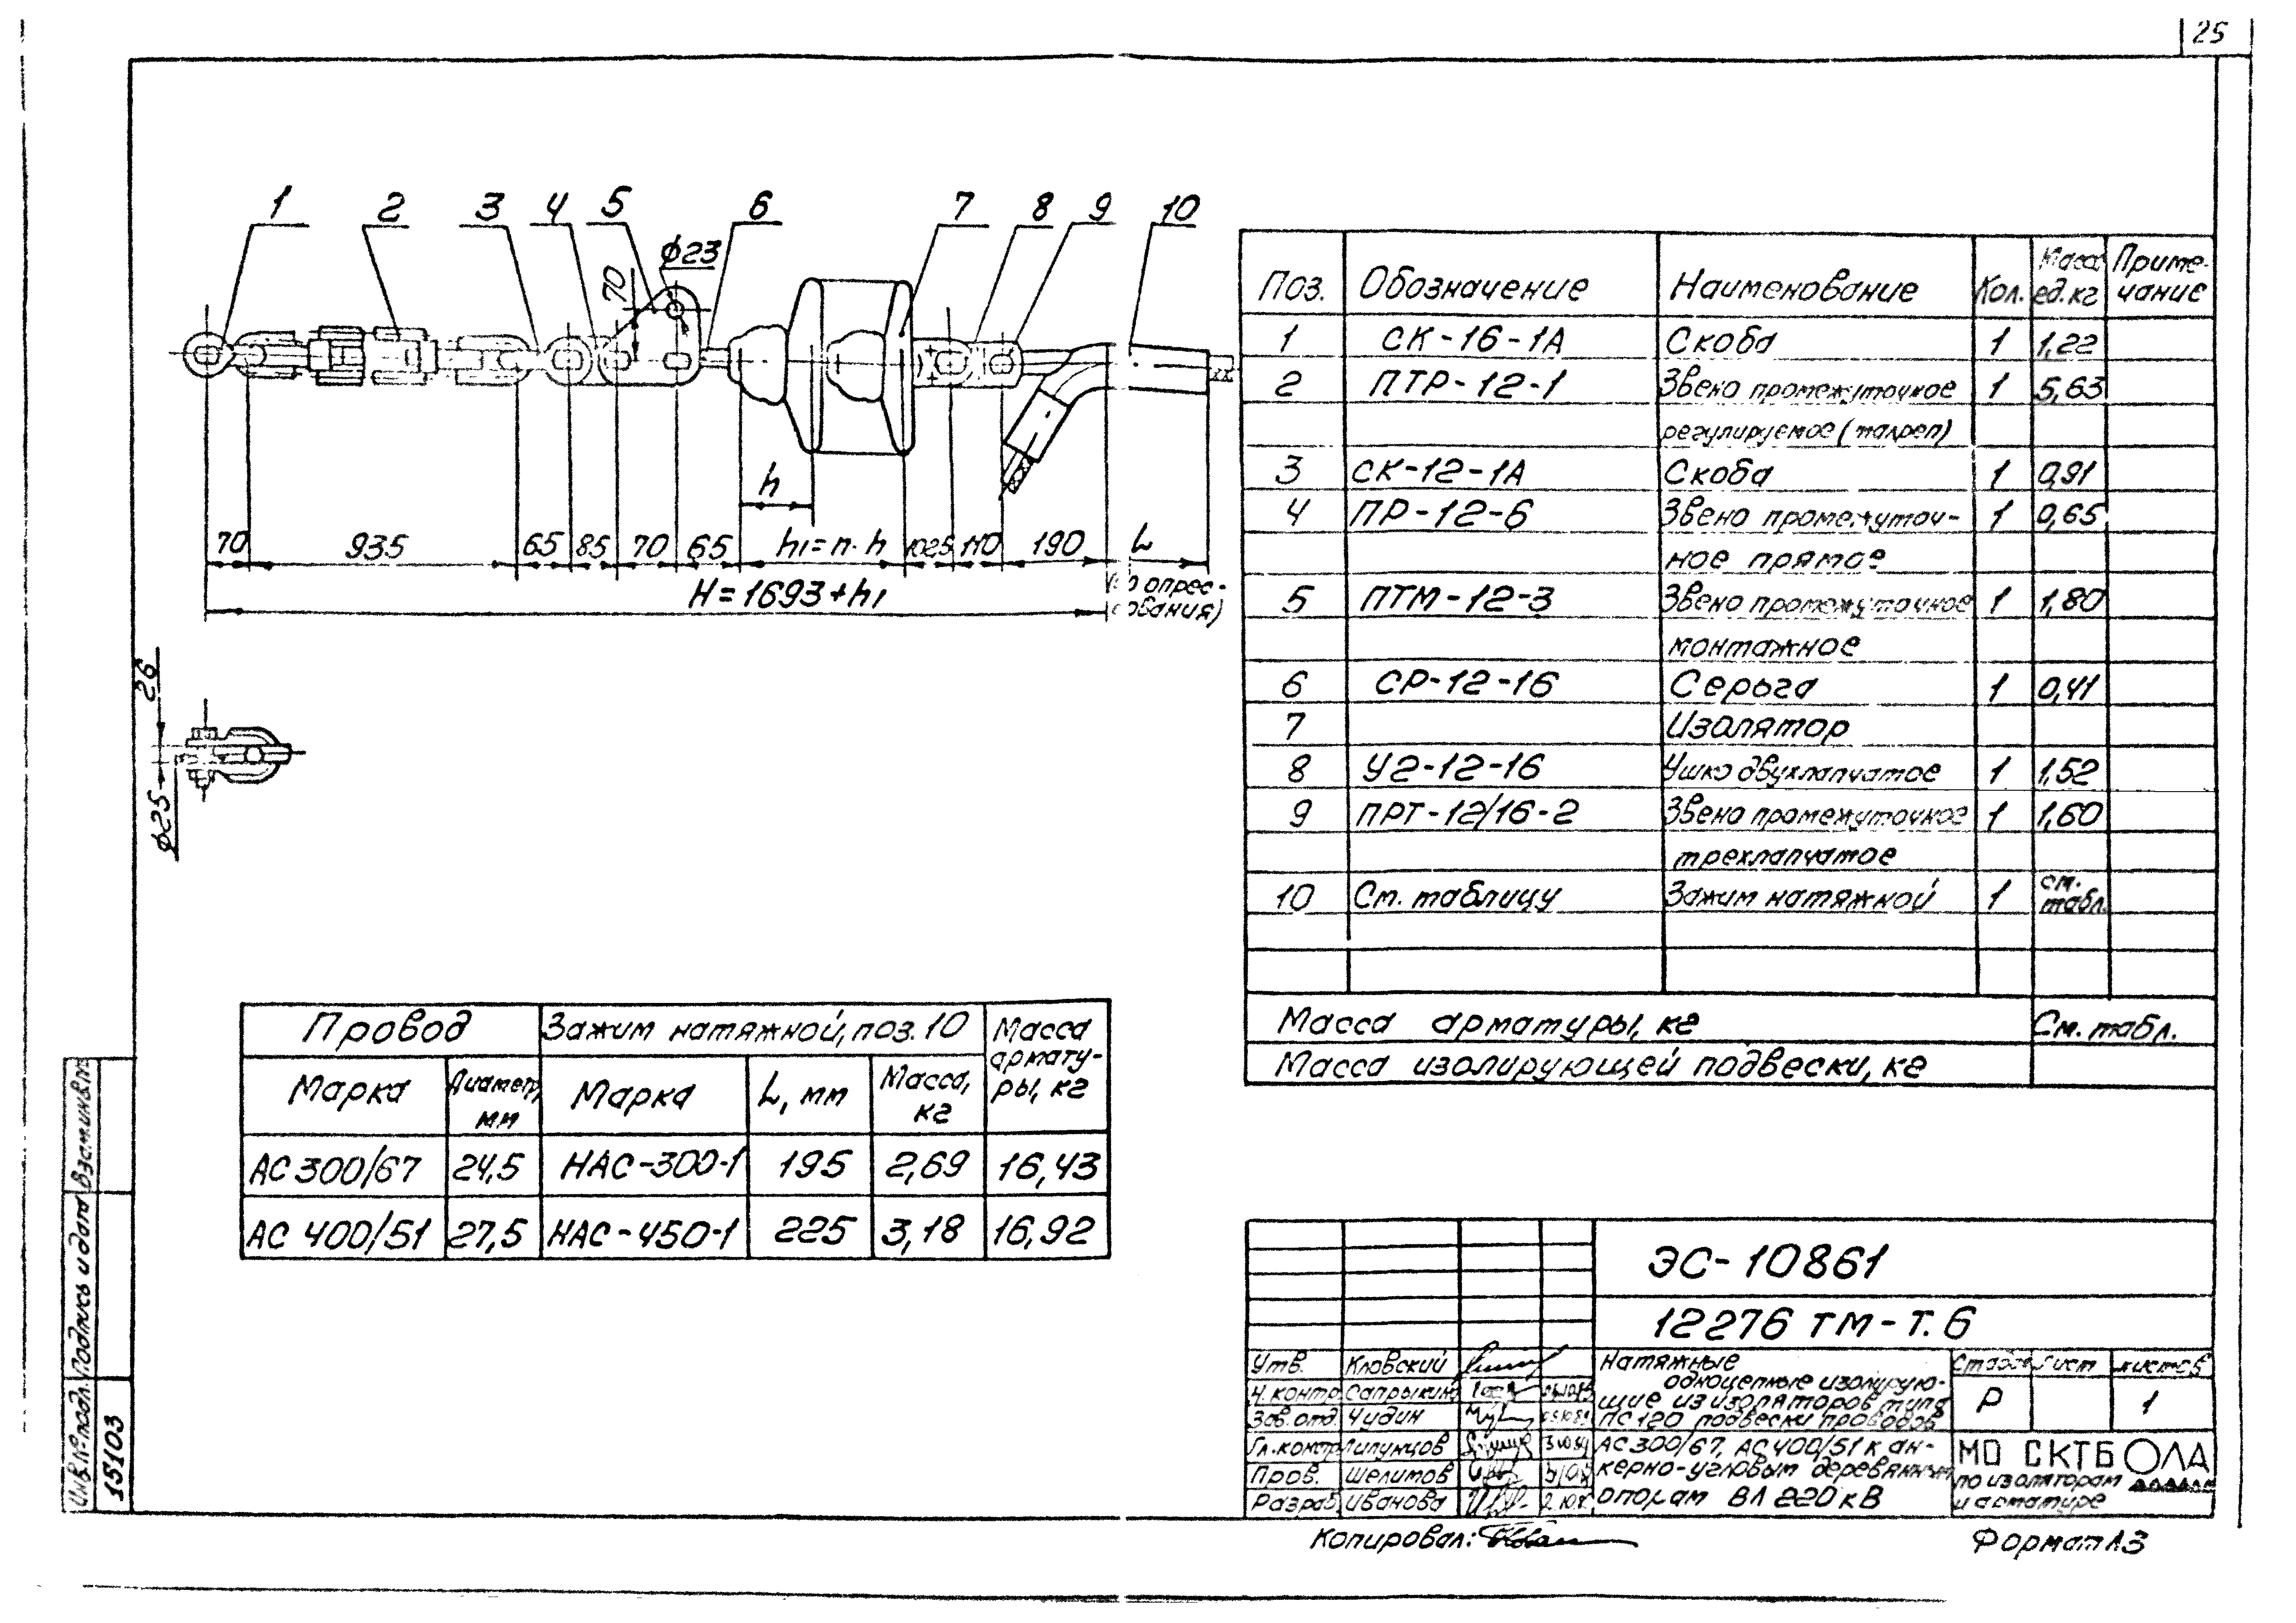 25
1 2 3 4 5 6 7 8 9 10
ф23
70
h
70 935 65 85 70 65 h1=n·h 102,5 110 190 L
H=1693+h1
(до опрес-
сования)
26
ф25
Поз. Обозначение Наименование Кол. Масса ед.кг Приме-чание
1 СК-16-1А Скоба 1 1,22
2 ПТР-12-1 Звено промежуточное 1 5,63
регулируемое (талреп)
3 СК-12-1А Скоба 1 0,91
4 ПР-12-6 Звено промежуточ- 1 0,65
ное прямое
5 ПТМ-12-3 Звено промежуточное 1 1,80
монтажное
6 СР-12-16 Серьга 1 0,41
7 Изолятор
8 У2-12-16 Ушко двухлапчатое 1 1,52
9 ПРТ-12/16-2 Звено промежуточное 1 1,60
трехлапчатое
10 См. таблицу Зажим натяжной 1 см. табл.
Масса арматуры, кг См. табл.
Масса изолирующей подвески, кг
Провод Зажим натяжной, поз. 10 Масса армату-ры, кг
Марка Диаметр, мм Марка L, мм Масса, кг
АС 300/67 24,5 НАС-300-1 195 2,69 16,43
АС 400/51 27,5 НАС-450-1 225 3,18 16,92
ЭС-10861
12276 тм-т. 6
Утв. Кловский
Н. контр. Сапрыкин
Зав. отд. Чудин
Гл. констр. Липунцов
Пров. Шелитов
Разраб. Иванова
Натяжные
одноцепные изолирую-
щие из изоляторов типа
ПС 120 подвески проводов
АС 300/67, АС 400/51 к ан-
керно-угловым деревянным
опорам ВЛ 220 кВ
Стадия Лист Листов
Р 1
МО СКТБ ОЛА
по изоляторам
и арматуре
Инв. № подл. Подпись и дата Взам.инв.№
15103
Копировал:
Формат А3